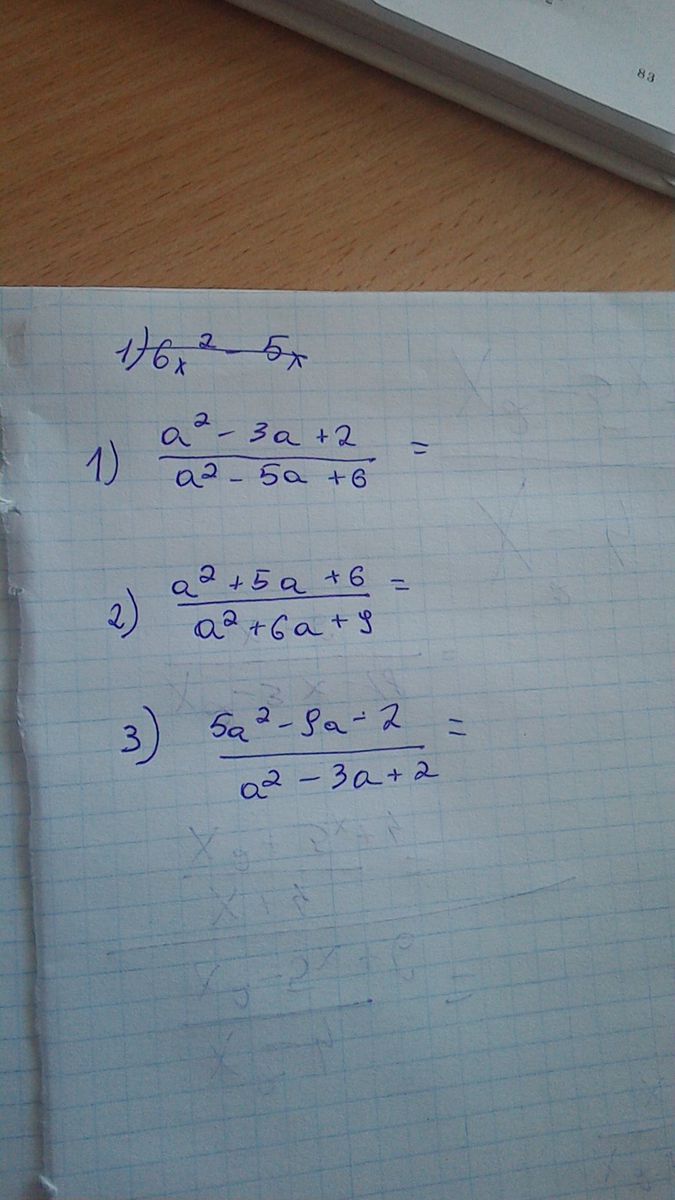 83
1) 6x² - 5x
1) (a² - 3a + 2)/(a² - 5a + 6) =
2) (a² + 5a + 6)/(a² + 6a + 9) =
3) (5a² - 9a - 2)/(a² - 3a + 2) =